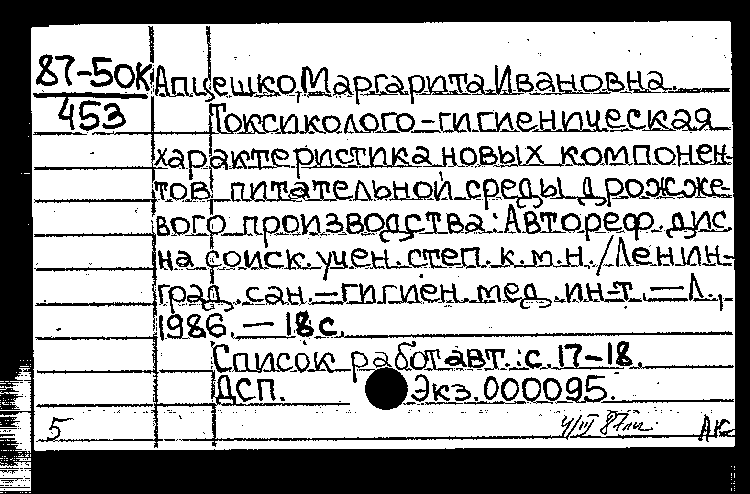 87-50К Апцешко, Маргарита Ивановна.
453 Токсиколого-гигиеническая
характеристика новых компонен-
тов питательной среды дрожже-
вого производства: Автореф. дис.
на соиск. учен. степ. к.м.н. / Ленин-
град. сан.-гигиен. мед. ин-т. — Л.,
1986. — 18 с.
Список работ авт.: с. 17-18.
ДСП. Экз. 000095.
5 АК